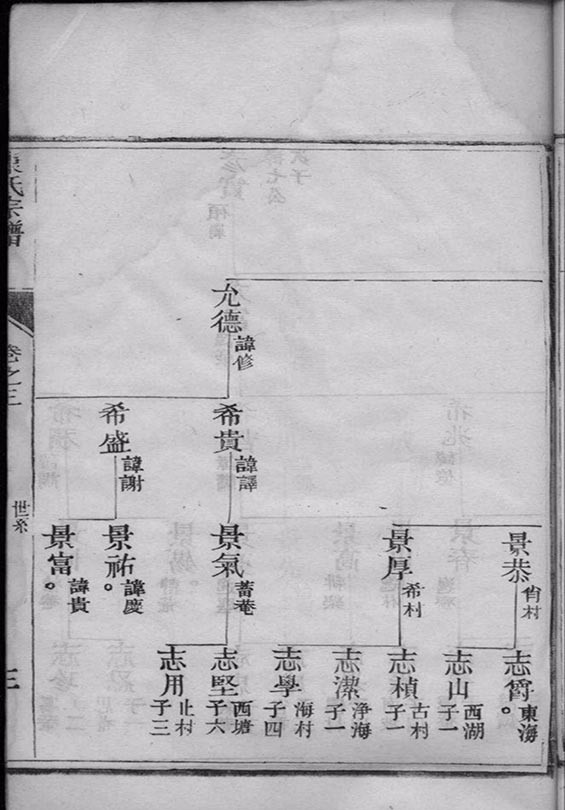 允德 諱修
希貴 諱譯
希盛 諱謝
景恭 肖村
景厚 希村
景氣 蓄菴
景祐。 諱慶
景富。 諱貴
志霄。 東海
志山 西湖 子一
志楨 古村 子一
志潔 浄海 子一
志學 海村 子四
志堅 西塘 子六
志用 止村 子三
氏宗譜
卷之三
世系
三